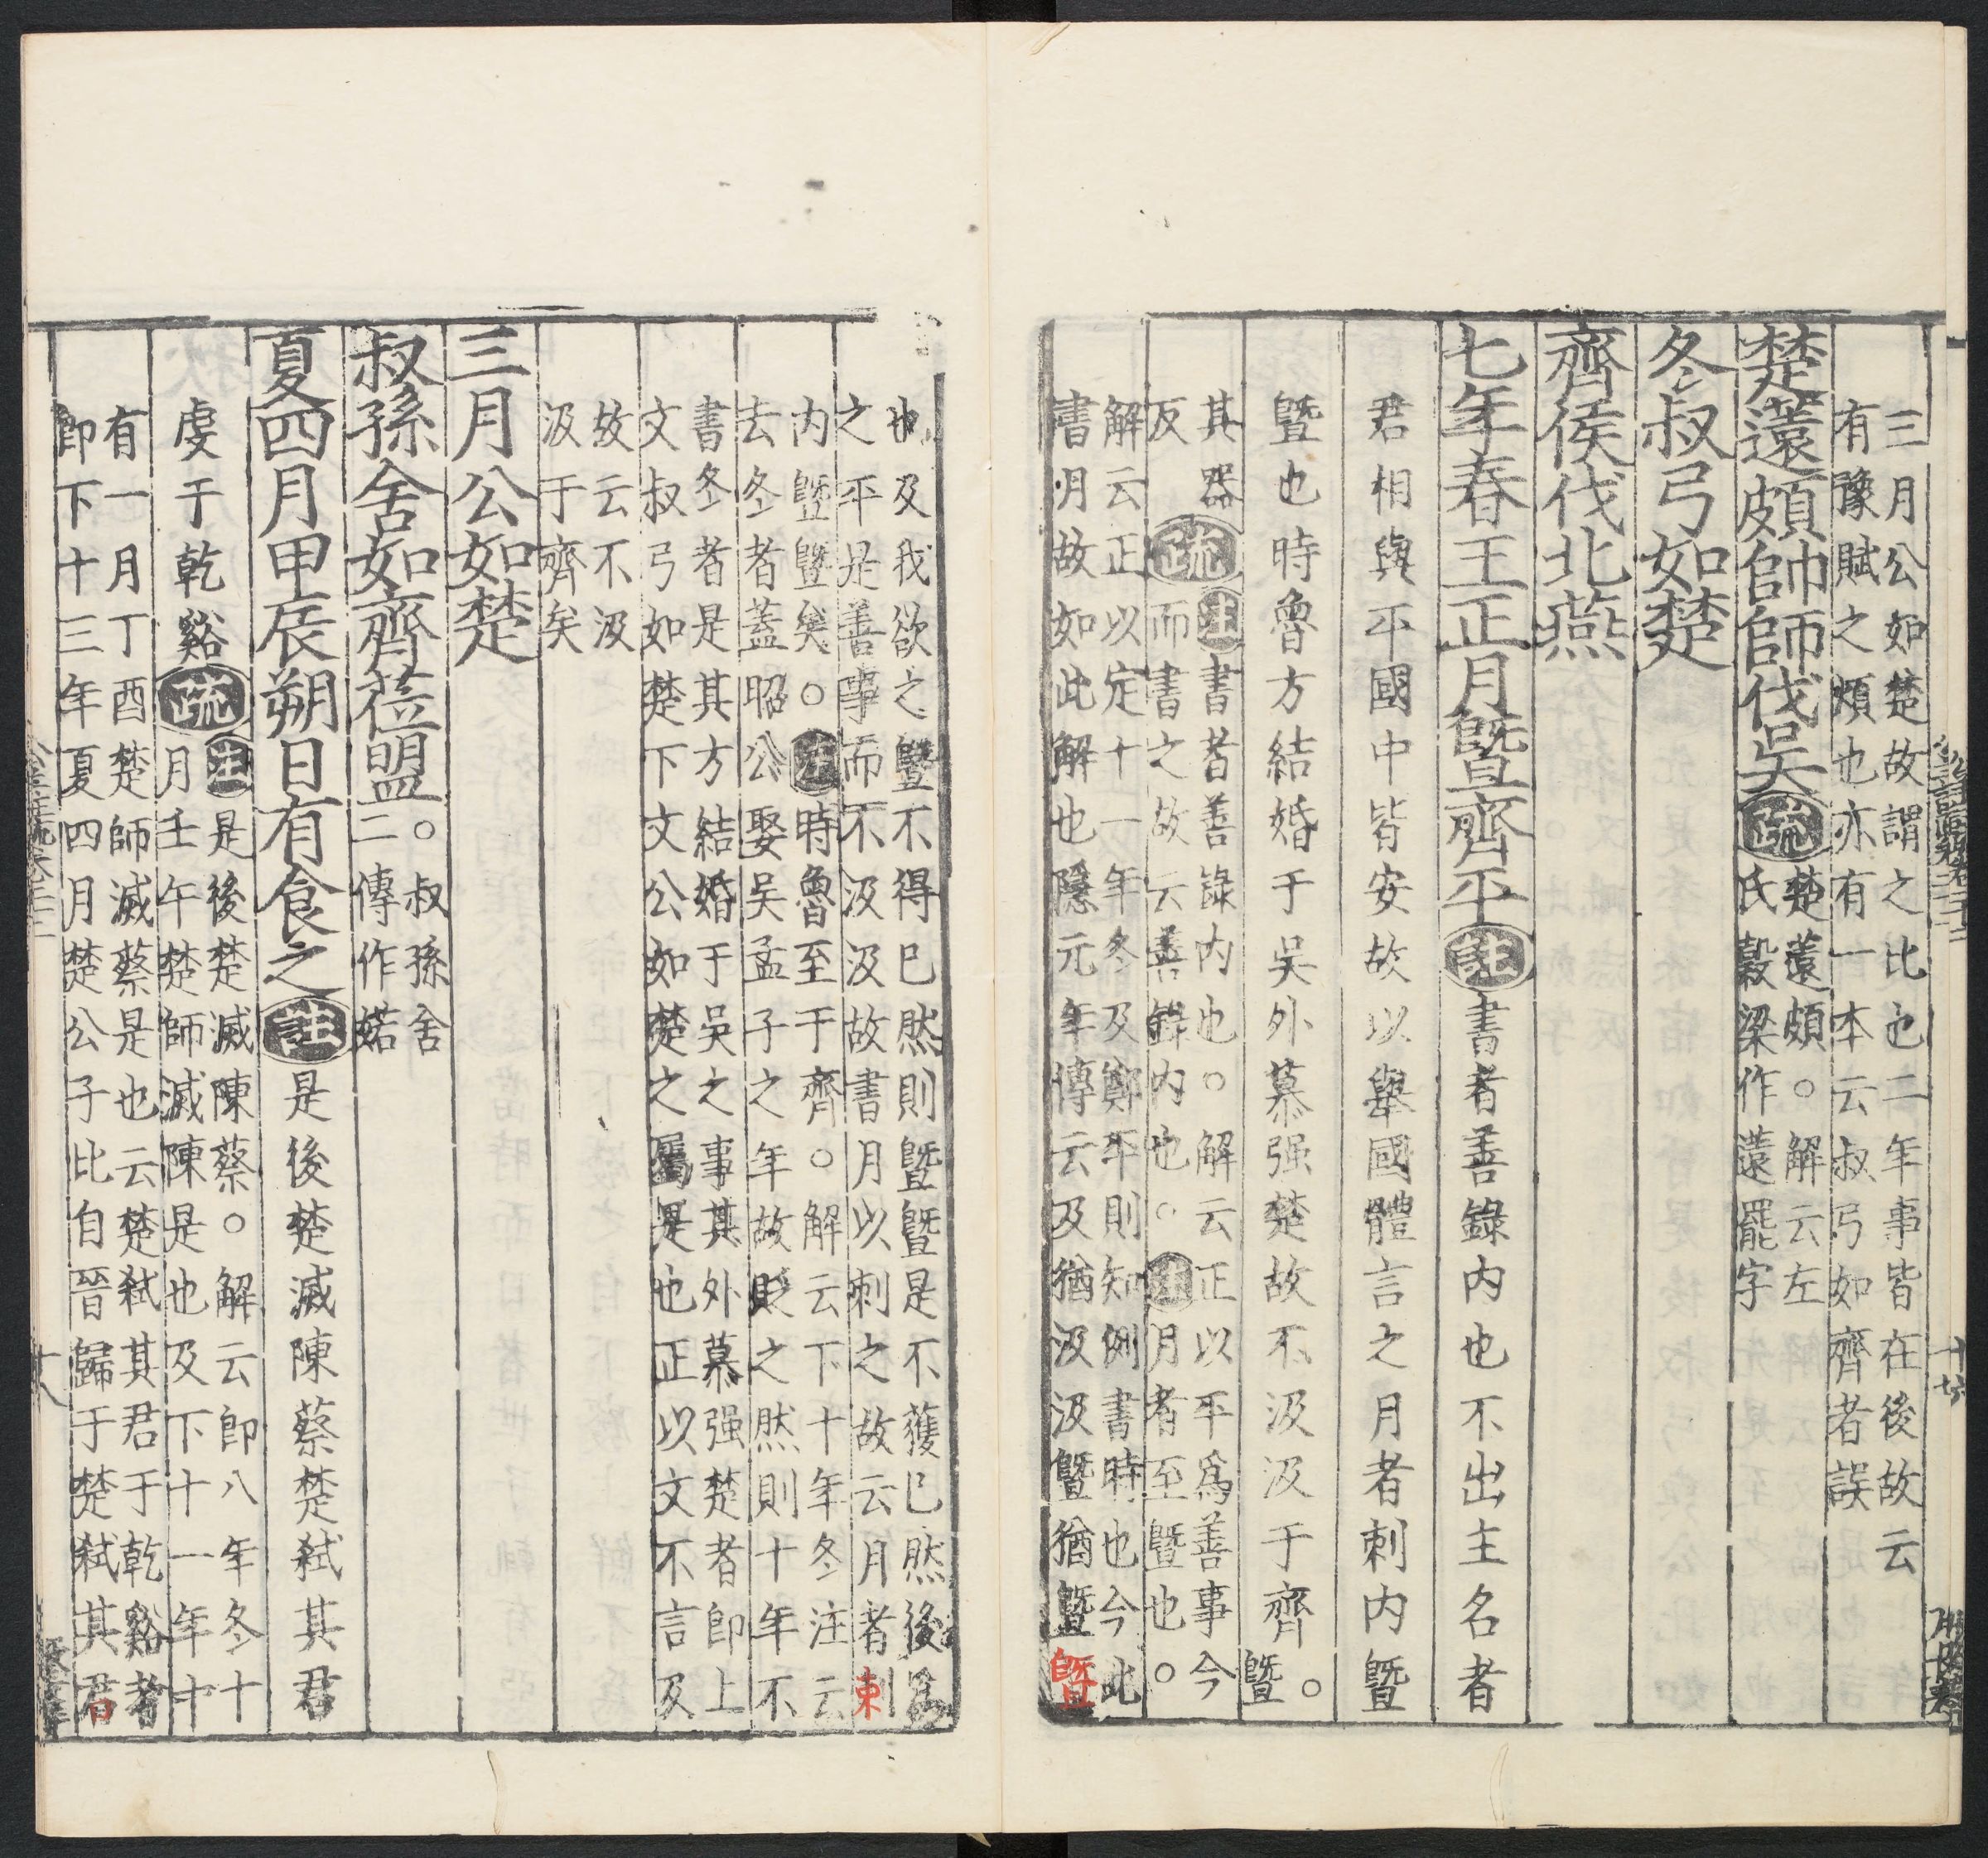 三月公如楚故謂之比也二年事皆在後故云
有豫賦之煩也亦有一本云叔弓如齊者誤
楚薳頗帥師伐吳疏楚薳頗。解云左
氏穀梁作薳罷字
冬叔弓如楚
齊侯伐北燕
七年春王正月曁齊平註書者善錄內也不出主名者
君相與平國中皆安故以舉國體言之月者刺內曁
曁也時魯方結婚于吳外慕强楚故不汲汲于齊。曁
其器
反
疏注書者善錄內也。解云正以平爲善事今
而書之故云善錄內也。注月者至曁也。
解云正以定十一年冬及鄭平則知例書時也今此
書月故如此解也隱元年傳云及猶汲汲曁猶曁曁
也及我欲之曁不得已然則曁曁是不獲已然後爲
之平是善事而不汲汲故書月以刺之故云月者刺
內曁曁矣。注時魯至于齊。解云下十年冬注云
去冬者蓋昭公娶吳孟子之年故貶之然則十年不
書冬者是其方結婚于吳之事其外慕强楚者卽上
文叔弓如楚下文公如楚之屬是也正以文不言及
故云不汲
汲于齊矣
三月公如楚
叔孫舍如齊莅盟。叔孫舍
二傳作婼
夏四月甲辰朔日有食之註是後楚滅陳蔡楚弒其君
虔于乾谿疏注是後楚滅陳蔡。解云卽八年冬十
月壬午楚師滅陳是也及下十一年十
有一月丁酉楚師滅蔡是也云楚弒其君于乾谿者
卽下十三年夏四月楚公子比自晉歸于楚弒其君